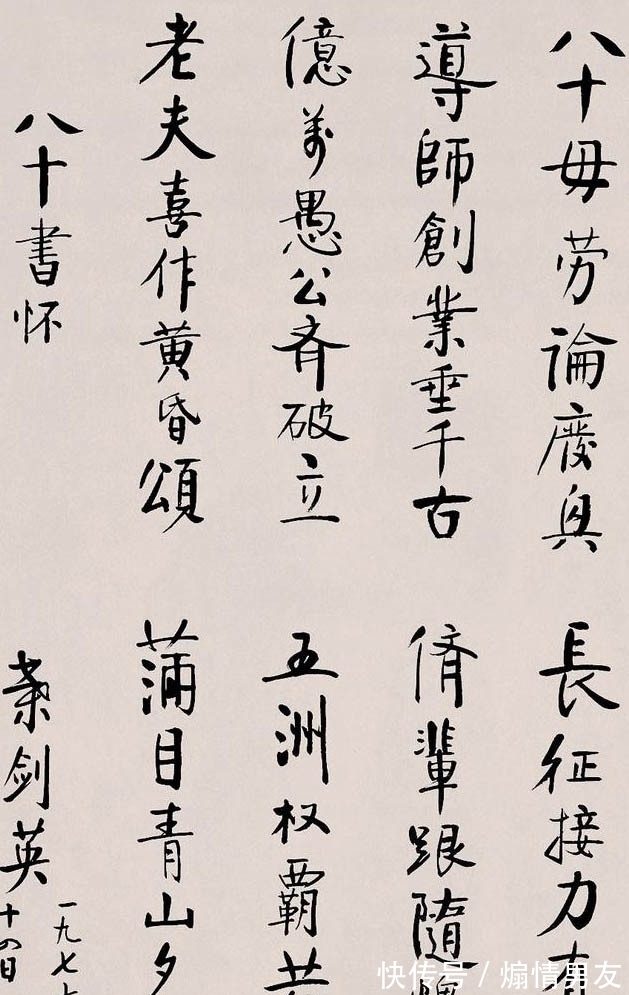 八十毋劳論廢興 長征接力有
導師創業垂千古 侪輩跟隨愧
億萬愚公齐破立 五洲权霸共
老夫喜作黄昏頌 满目青山夕
八十書怀 葉剑英
一九七
十四日
快传号 / 煽情男友